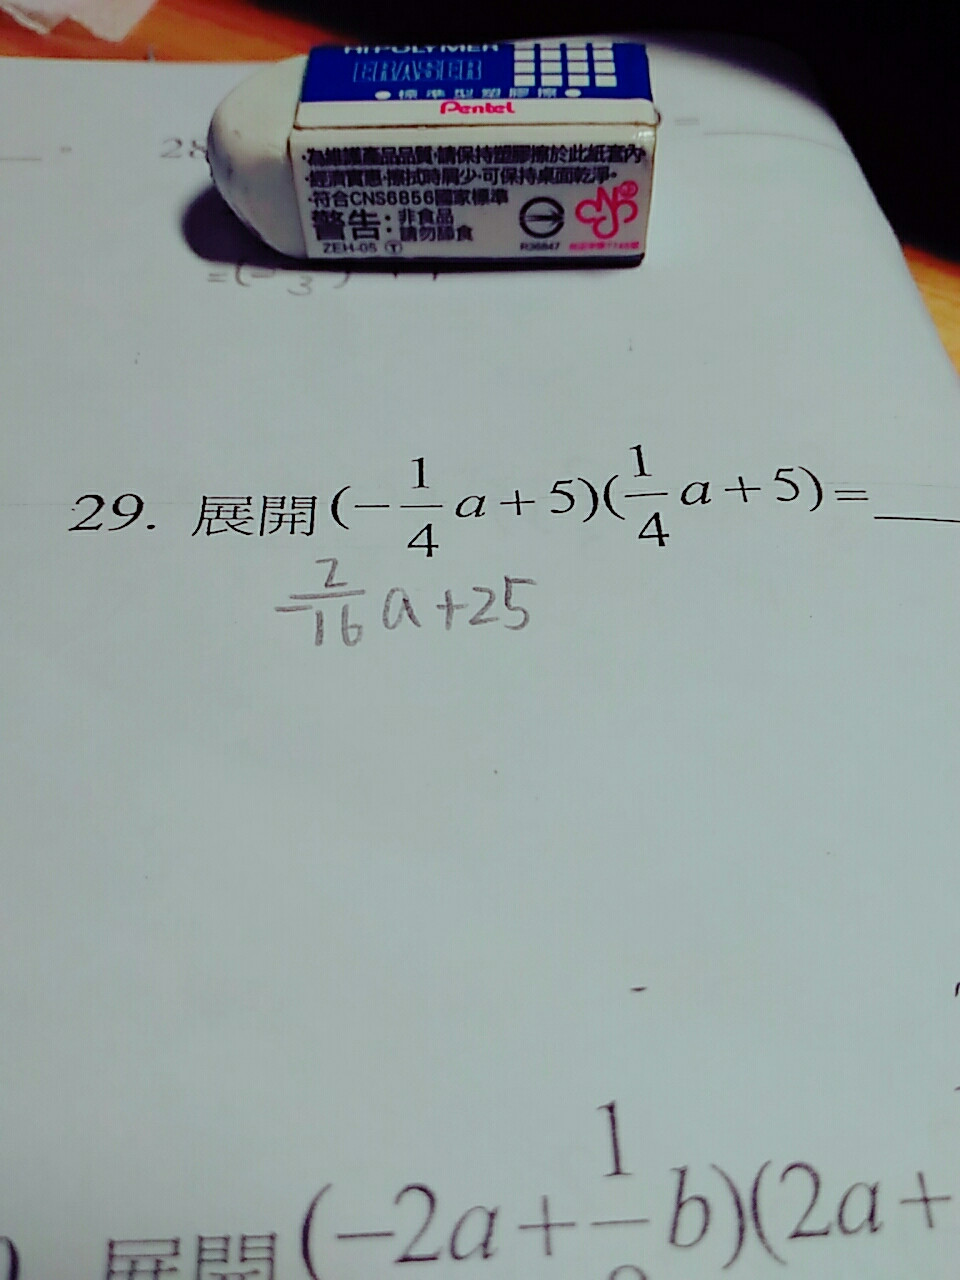 HI-POLYMER
ERASER
●標準型塑膠擦●
Pentel
·為維護產品品質·請保持塑膠擦於此紙套內·
·經濟實惠·擦拭時屑少·可保持桌面乾淨·
·符合CNS6856國家標準
警告:非食品
請勿舔食
ZEH-05 Ⓣ
R36847
28
=(-
3
29. 展開(-1/4 a+5)(1/4 a+5)=
-2/16 a+25
展開(-2a+1/ b)(2a+